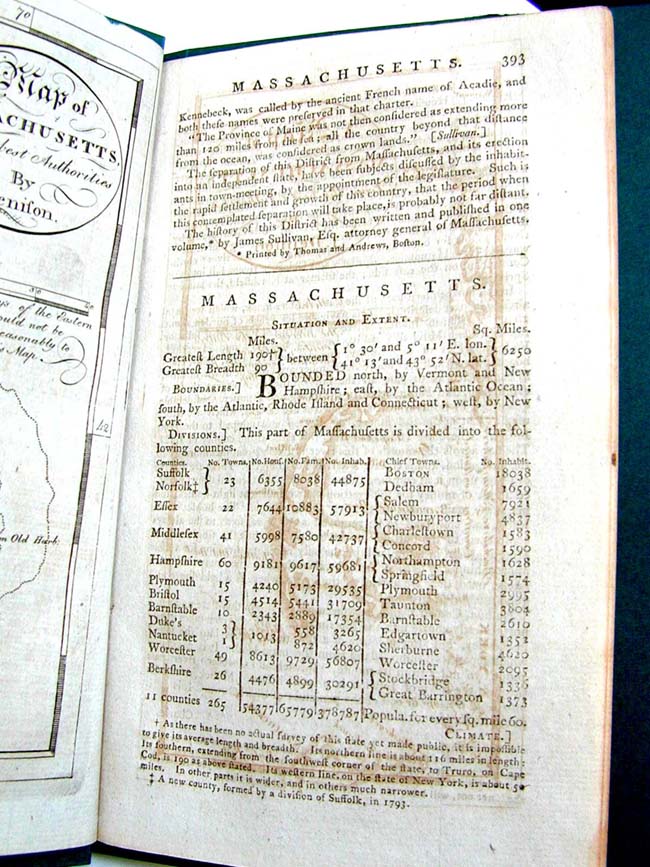 70
Map of
ACHUSETTS.
best Authorities
By
enison.
of the Eastern
ould not be
easonably to
Map.
42
Old Harb.
MASSACHUSETTS. 393
Kennebeck, was called by the ancient French name of Acadie, and
both these names were preserved in that charter.
"The Province of Maine was not then considered as extending more
than 120 miles from the sea; all the country beyond that distance
from the ocean, was considered as crown lands." [Sullivan.]
The separation of this District from Massachusetts, and its erection
into an independent state, have been subjects discussed by the inhabit-
ants in town-meeting, by the appointment of the legislature. Such is
the rapid settlement and growth of this country, that the period when
this contemplated separation will take place, is probably not far distant.
The history of this District has been written and published in one
volume,* by James Sullivan, Esq. attorney general of Massachusetts.
* Printed by Thomas and Andrews, Boston.
MASSACHUSETTS.
SITUATION AND EXTENT.
Miles. Sq. Miles.
Greatest Length 190† } between { 1° 30' and 5° 11' E. lon. } 6250
Greatest Breadth 90 } { 41° 13' and 43° 52' N. lat. }
BOUNDARIES.] BOUNDED north, by Vermont and New
Hampshire; east, by the Atlantic Ocean;
south, by the Atlantic, Rhode Island and Connecticut; west, by New
York.
DIVISIONS.] This part of Massachusetts is divided into the fol-
lowing counties.
Counties. No. Towns. No. Hous. No. Fam. No. Inhab. Chief Towns. No. Inhabit.
Suffolk } 23 6355 8038 44875 BOSTON 18038
Norfolk‡ } Dedham 1659
Essex 22 7644 10883 57913 { Salem 7921
{ Newburyport 4837
Middlesex 41 5998 7580 42737 { Charlestown 1583
{ Concord 1590
Hampshire 60 9181 9617 59681 { Northampton 1628
{ Springfield 1574
Plymouth 15 4240 5173 29535 Plymouth 2995
Bristol 15 4514 5441 31709 Taunton 3804
Barnstable 10 2343 2889 17354 Barnstable 2610
Duke's 3 } 1013 558 3265 Edgartown 1352
Nantucket 1 } 872 4620 Sherburne 4620
Worcester 49 8613 9729 56807 Worcester 2095
Berkshire 26 4476 4899 30291 { Stockbridge 1336
{ Great Barrington 1373
11 counties 265 54377 65779 378787 Popula. for every sq. mile 60.
CLIMATE.]
† As there has been no actual survey of this state yet made public, it is impossible
to give its average length and breadth. Its northern line is about 116 miles in length:
Its southern, extending from the southwest corner of the state, to Truro, on Cape
Cod, is 190 as above stated. Its western line, on the state of New York, is about 50
miles. In other parts it is wider, and in others much narrower.
‡ A new county, formed by a division of Suffolk, in 1793.